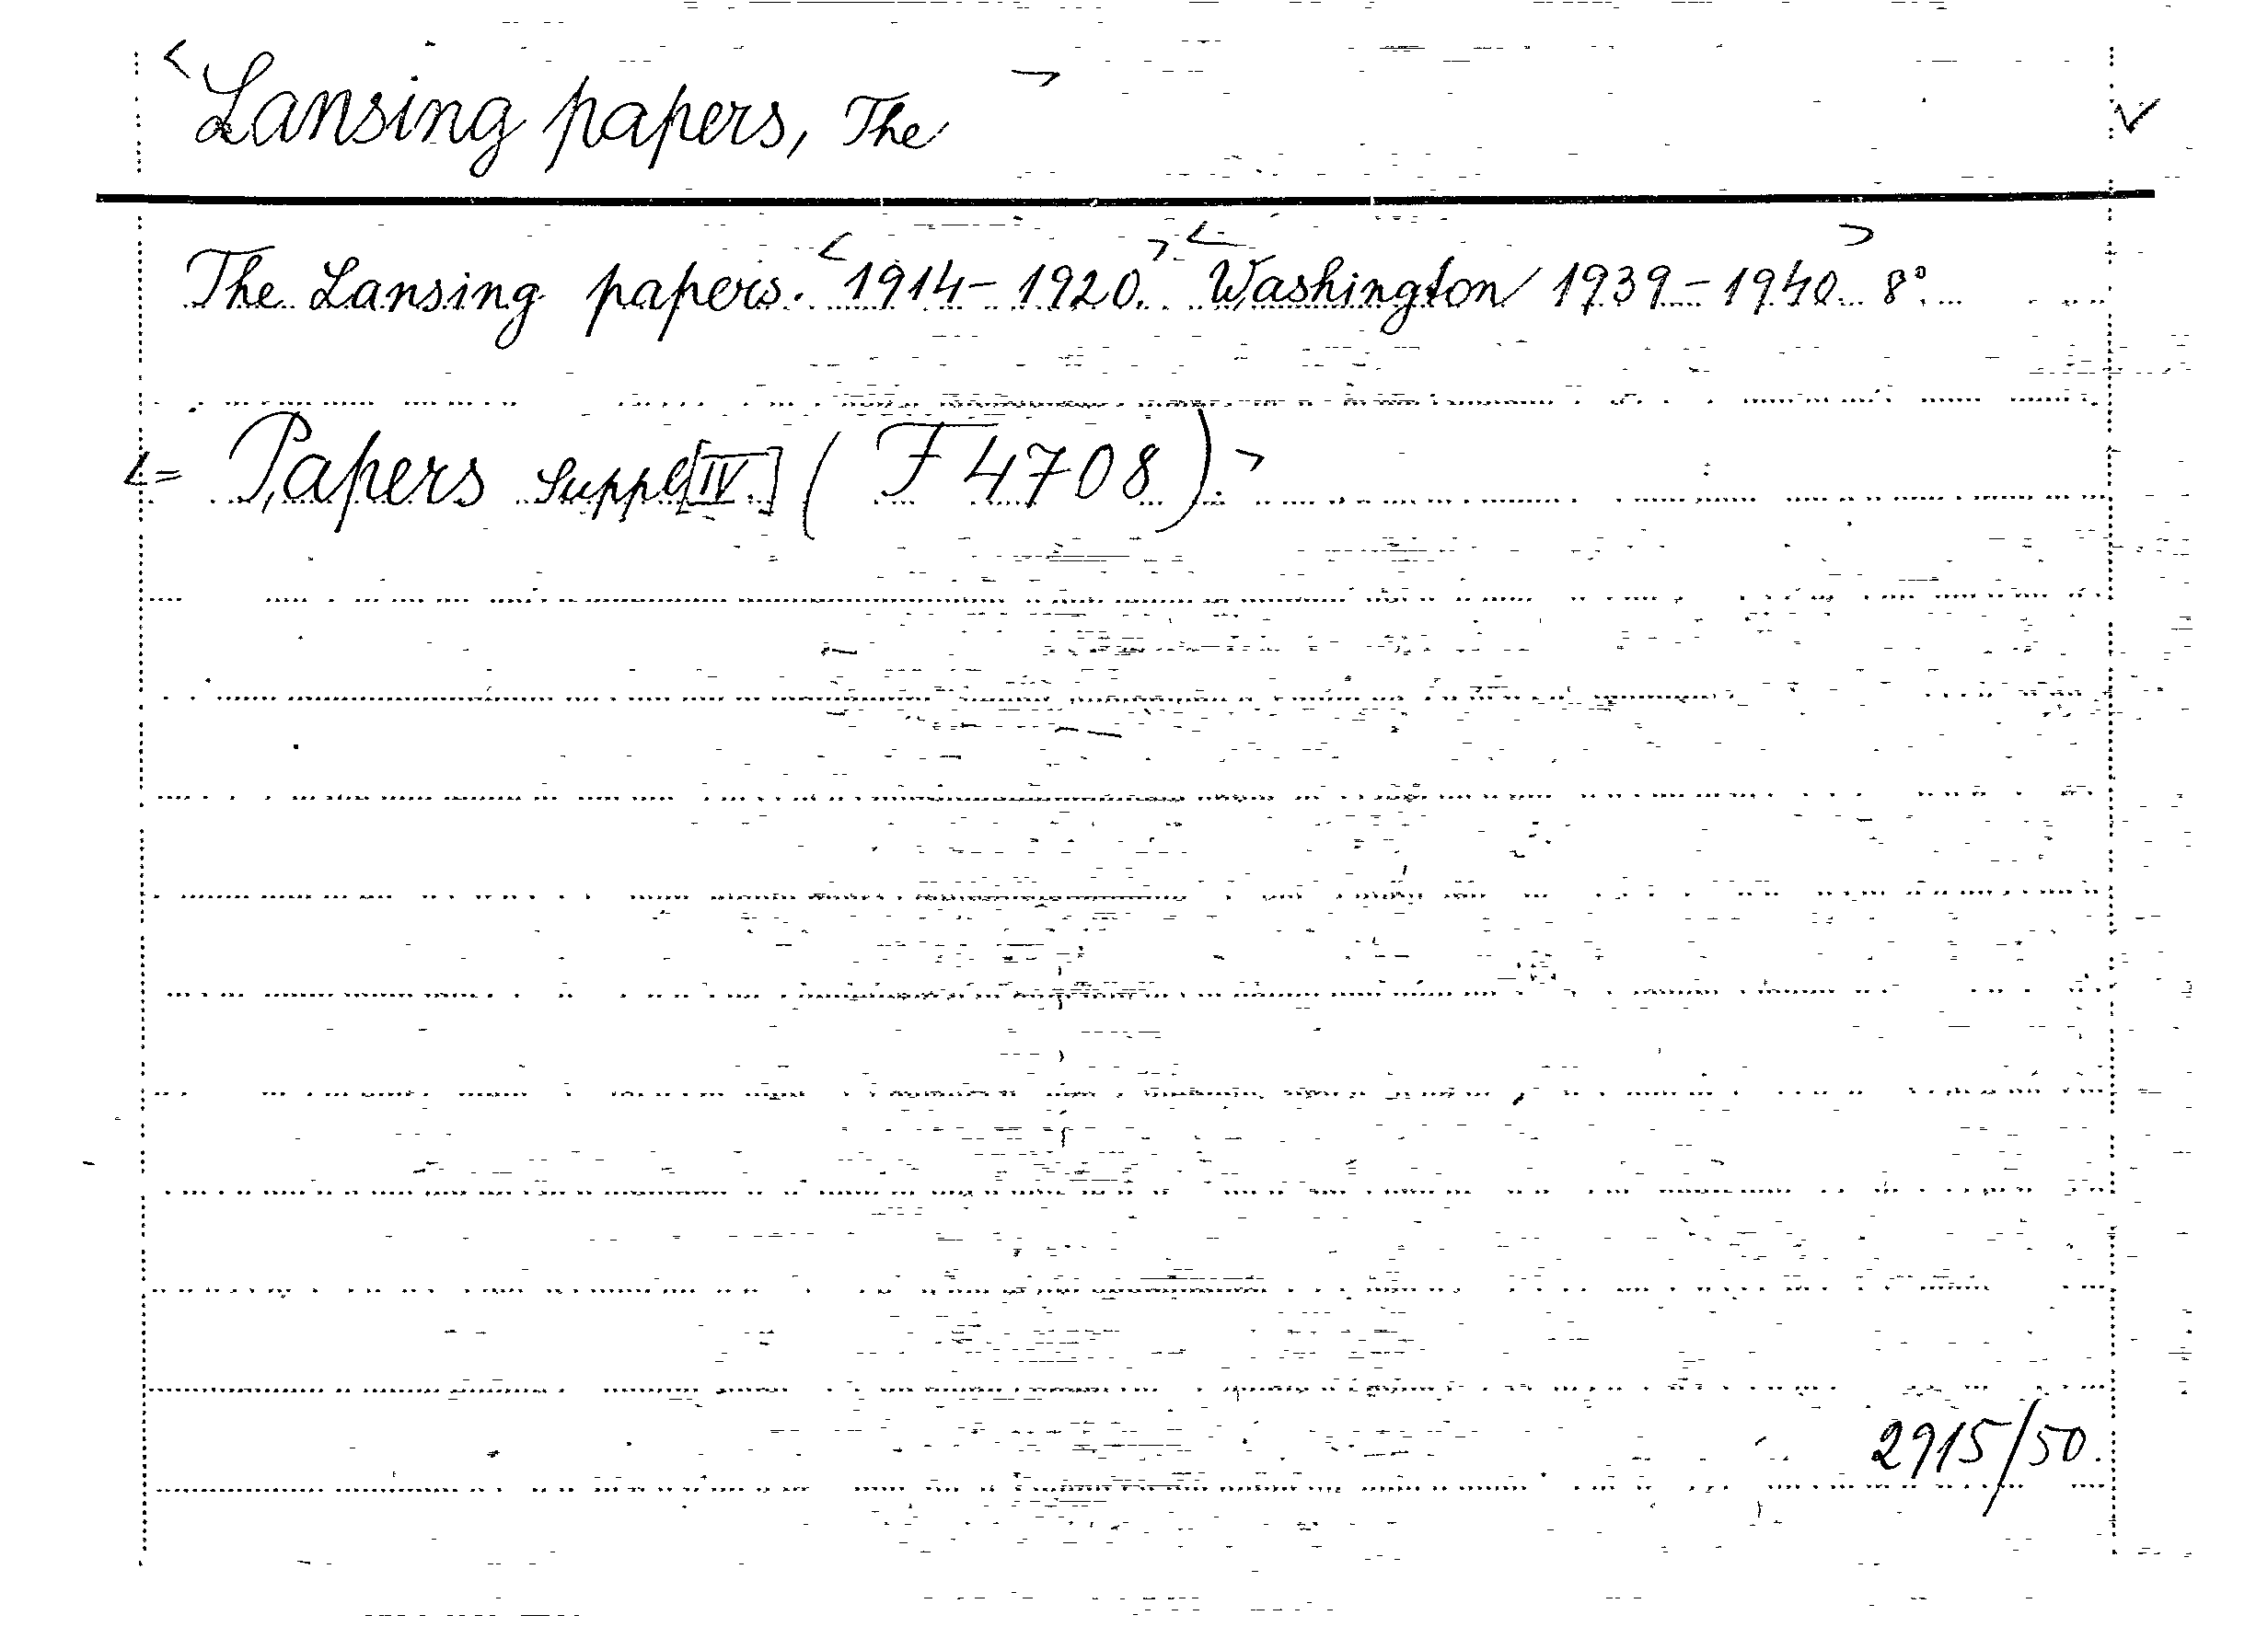 <Lansing papers, The>
The Lansing papers. <1914-1920.> <Washington 1939-1940> 8°.
<= Papers Suppl[IV] (F 4708).>
2915/50.